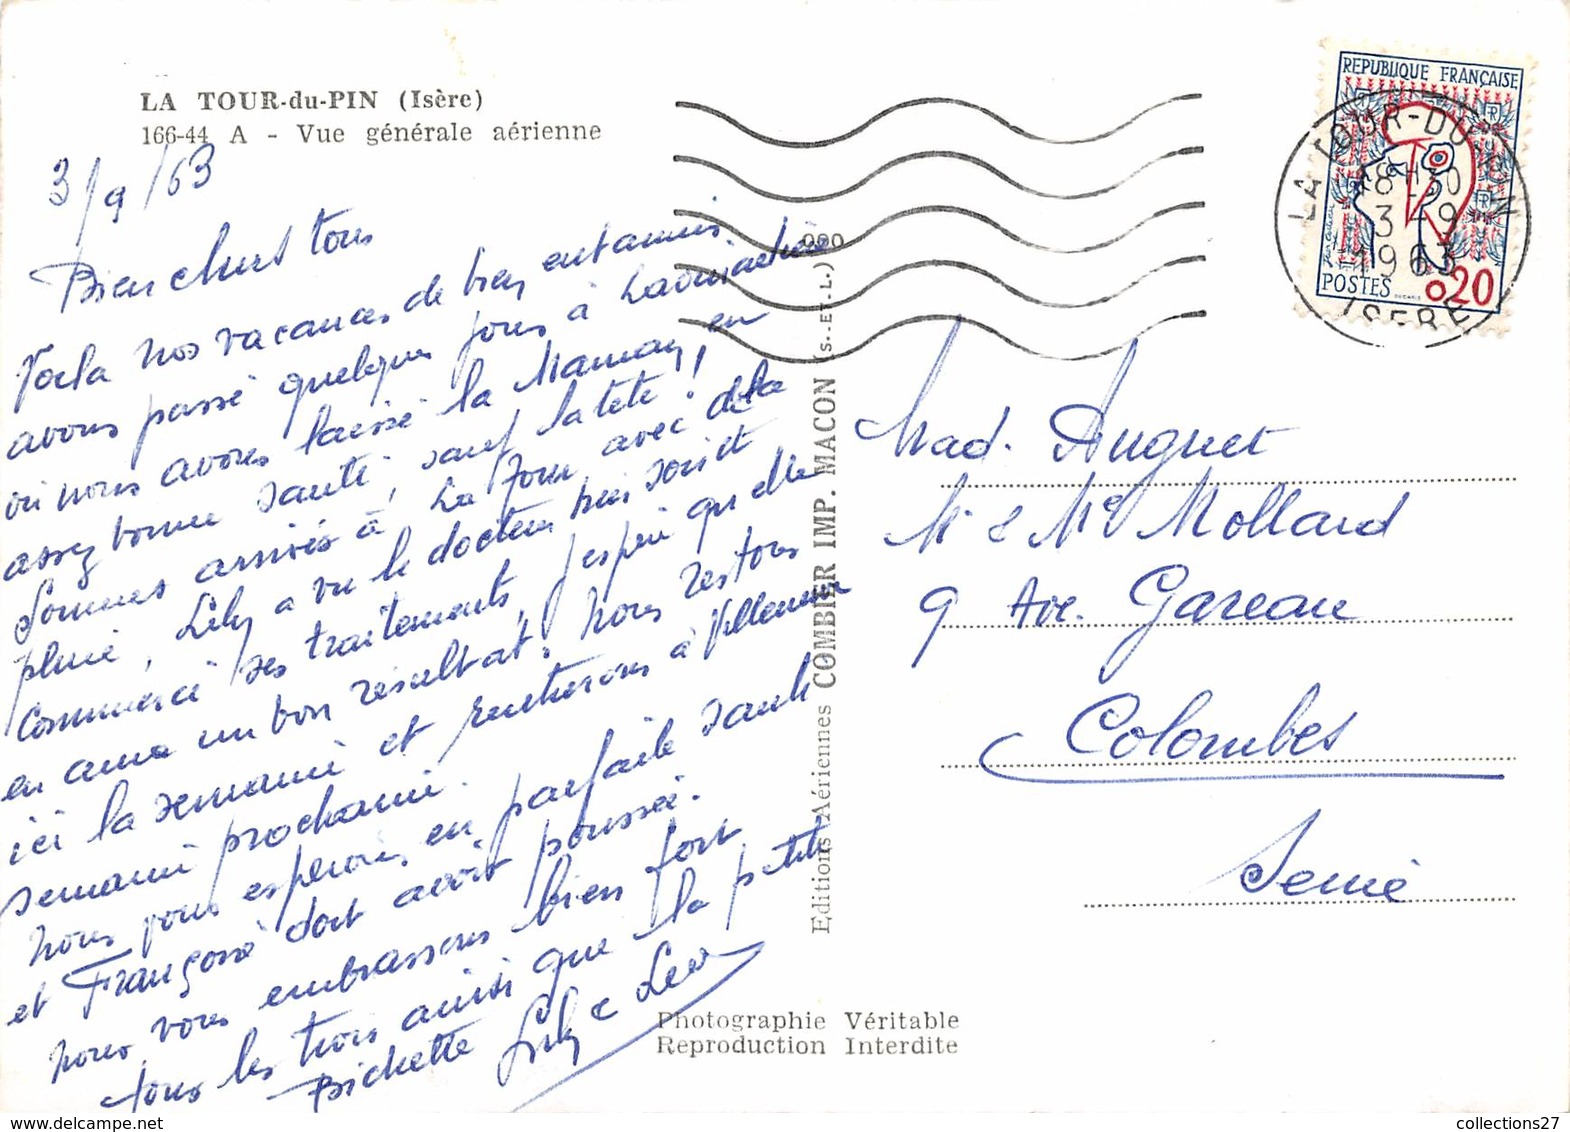 LA TOUR-du-PIN (Isère)
166-44 A - Vue générale aérienne
3/9/63
Bien chers tous
Voila nos vacances de bien entamis.
avons passé quelques jours à
où nous avons laissé la Maman, en
assez bonne santé, sauf la tête!
Sommes arrivés à La Tour avec de la
pluie, Lily a vu le docteur hier soir et
commencé ses traitements, j'espère qu'elle
en aura un bon résultat. Nous restons
ici la semaine et rentrerons à Villeneuve
semaine prochaine.
Nous vous esperons en parfaite santé
et Françoise doit avoir poussée.
Nous vous embrassons bien fort
tous les trois ainsi que la petite
Bichette Lily & Leon
REPUBLIQUE FRANÇAISE
POSTES
0,20
LA TOUR-DU-PIN
18H30
3-9
1963
ISERE
Mad. Auguet
M. & Me Mollard
9 Ave. Gareau
Colombes
Seine
Editions Aériennes COMBIER IMP. MACON (S.-ET-L.)
Photographie Véritable
Reproduction Interdite
https://www.delcampe.net
collections27